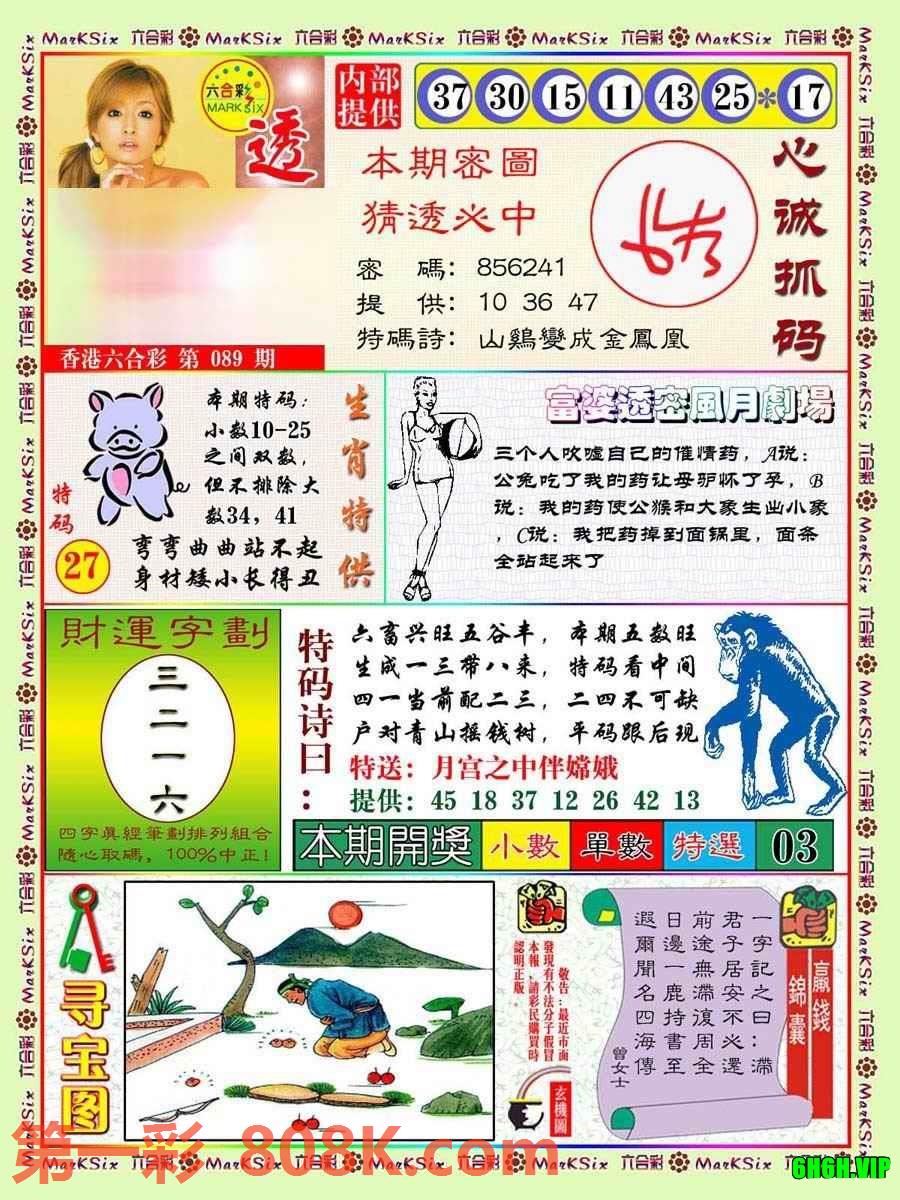 MarKSix 六合彩 MarKSix 六合彩 MarKSix 六合彩 MarKSix 六合彩 MarKSix 六合彩
六合彩
MARK SIX
透
内部
提供
37 30 15 11 43 25 * 17
本期密圖
猜透必中
密 碼: 856241
提 供: 10 36 47
特碼詩: 山鷄變成金鳳凰
心诚抓码
香港六合彩 第 089 期
特码
27
本期特码:
小数10-25
之间双数,
但不排除大
数34, 41
弯弯曲曲站不起
身材矮小长得丑
生肖特供
富婆透密風月劇場
三个人吹嘘自己的催情药, A说:
公兔吃了我的药让母驴怀了孕, B
说: 我的药使公猴和大象生出小象
, C说: 我把药掉到面锅里, 面条
全站起来了
財運字劃
三
二
一
六
四字真經筆劃排列組合
隨心取碼, 100%中正!
特码诗曰:
六畜兴旺五谷丰, 本期五数旺
生成一三带八来, 特码看中间
四一当前配二三, 二四不可缺
户对青山摇钱树, 平码跟后现
特送: 月宫之中伴嫦娥
提供: 45 18 37 12 26 42 13
本期開獎 小數 單數 特選 03
寻宝图
敬告:最近市面
發現有不法分子假冒
本報,請彩民購買時
認明正版。
玄機圖
一字記之曰:滯
君子居安不必還
前途無滯復周全
日邊一鹿持書至
遐爾聞名四海傳
曾女士
贏錢
錦囊
第一彩 808K.com
6H6H.VIP
MarKSix 六合彩 MarKSix 六合彩 MarKSix 六合彩 MarKSix 六合彩 MarKSix 六合彩